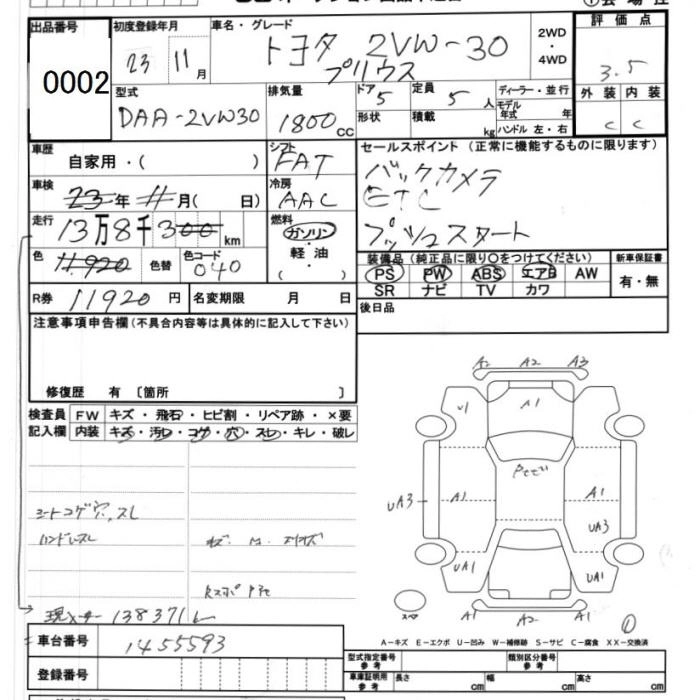 出品番号
0002
初度登録年月
23 11月
車名・グレード
トヨタ ZVW-30
プリウス
2WD
・
4WD
評価点
3.5
型式
DAA-ZVW30
排気量
1800cc
ドア 5
定員 5人
形状
積載 kg
ディーラー・並行
モデル年式 年
ハンドル 左・右
外装 内装
C C
車歴
自家用・( )
シフト
FAT
車検
23年11月( 日)
冷房
AAC
走行
13万8千300km
燃料
ガソリン
・
軽油
( )
色
11920
色替
色コード
040
R券 11920円
名変期限 月 日
セールスポイント (正常に機能するものに限ります)
バックカメラ
ETC
プッシュスタート
装備品(純正品に限り○をつけてください)
PS PW ABS エアB AW
SR ナビ TV カワ
新車保証書
有・無
後日品
注意事項申告欄(不具合内容等は具体的に記入して下さい)
修復歴 有〔箇所 〕
検査員 FW キズ・飛石・ヒビ割・リペア跡・×要
記入欄 内装 キズ・汚レ・コゲ・穴・スレ・キレ・破レ
シートコゲ穴、スレ
ハンドルスレ
現メーター 138371
A2 A2 A3
U1 A1
UA3 A1 A1
UA3
UA1 UA1
スペア A1 A2 A1
①
A−キズ E−エクボ U−凹み W−補修跡 S−サビ C−腐食 XX−交換済
車台番号 1455593
登録番号
型式指定番号 参考
類別区分番号 参考
車庫証明用 参考 長さ cm 幅 cm 高さ cm